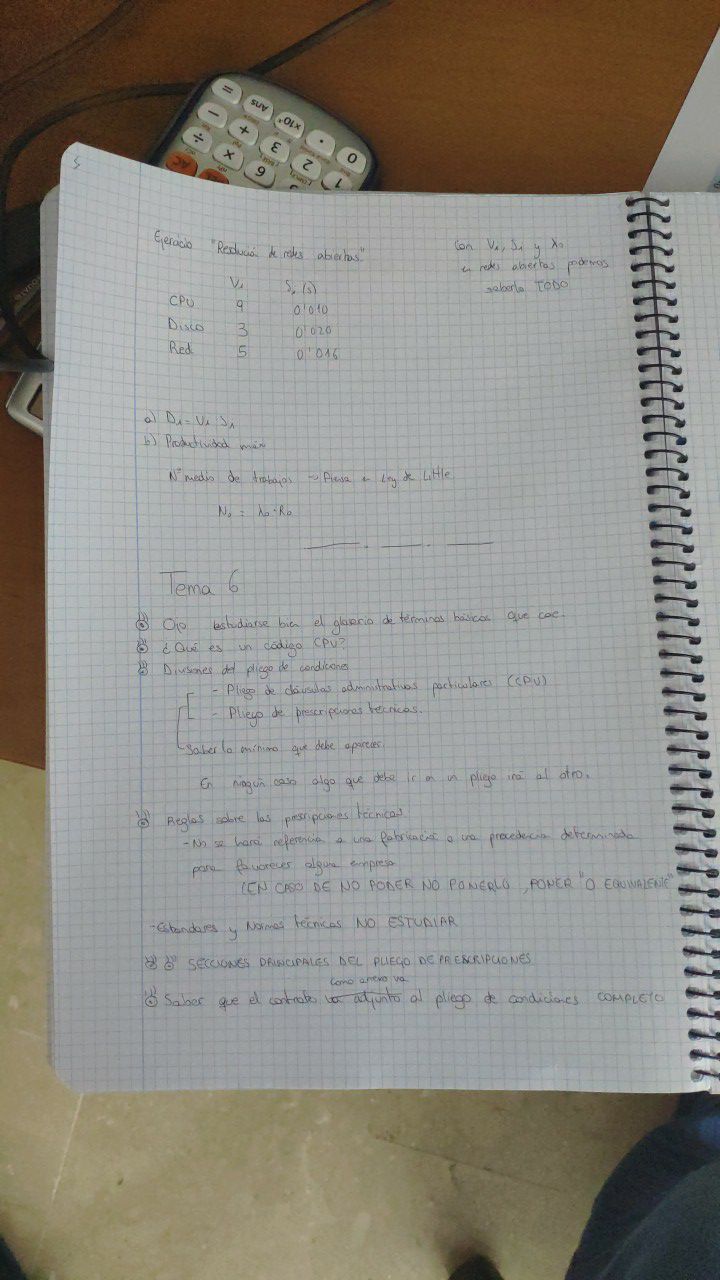 Ejercicio "Resolución de redes abiertas"
Con Vi, Si y λo
en redes abiertas podemos
saberlo TODO
Vi Si (s)
CPU 9 0'010
Disco 3 0'020
Red 5 0'016
a) Di = Vi · Si
b) Productividad máx
Nº medio de trabajos → Piensa en Ley de Little
No = λo · Ro
Tema 6
Ojo estudiarse bien el glosario de términos básicos que cae.
¿Qué es un código CPV?
Divisiones del pliego de condiciones
- Pliego de cláusulas administrativas particulares (CPV)
- Pliego de prescripciones técnicas.
Saber lo mínimo que debe aparecer.
En ningún caso algo que debe ir en un pliego irá al otro.
Reglas sobre las prescripciones técnicas
- No se hará referencia a una fabricación o una procedencia determinada
para favorecer alguna empresa
(EN CASO DE NO PODER NO PONERLO, PONER "O EQUIVALENTE"
- Estandares y Normas técnicas NO ESTUDIAR
SECCIONES PRINCIPALES DEL PLIEGO DE PRESCRIPCIONES
como anexo va
Saber que el contrato va adjunto al pliego de condiciones COMPLETO
= Ans x10ˣ · 0
- + 3 2 1
÷ x 6
AC